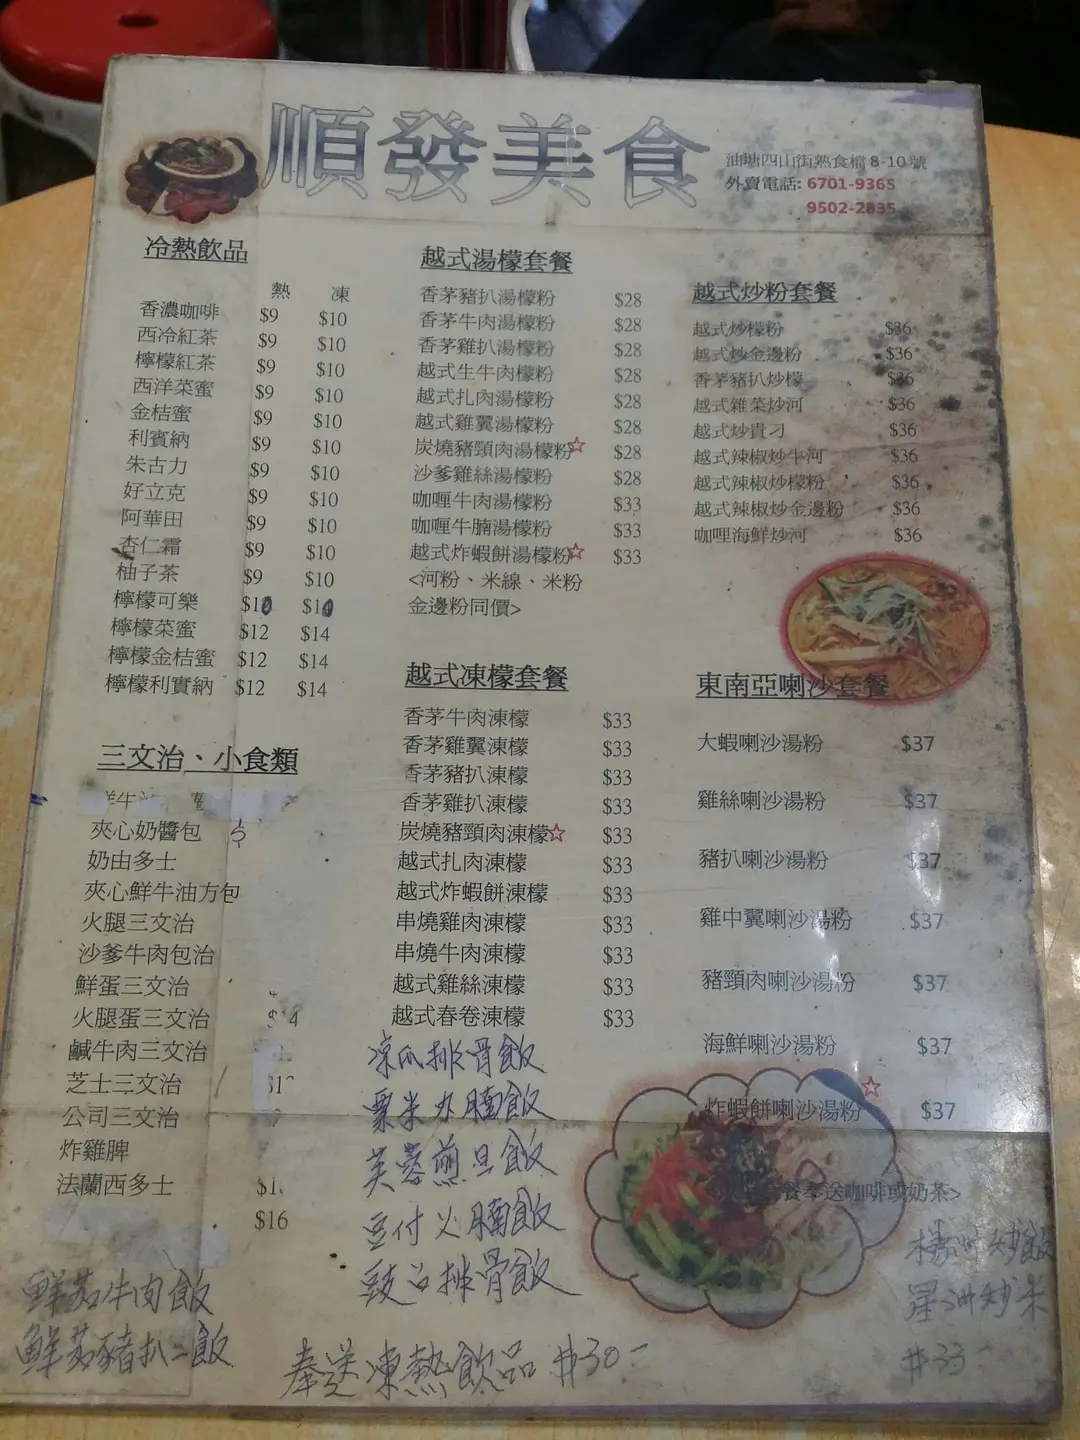 順發美食
油塘四山街熟食檔 8-10 號
外賣電話: 6701-9365
9502-2835
冷熱飲品
熱 凍
香濃咖啡 $9 $10
西冷紅茶 $9 $10
檸檬紅茶 $9 $10
西洋菜蜜 $9 $10
金桔蜜 $9 $10
利賓納 $9 $10
朱古力 $9 $10
好立克 $9 $10
阿華田 $9 $10
杏仁霜 $9 $10
柚子茶 $9 $10
檸檬可樂 $10 $10
檸檬菜蜜 $12 $14
檸檬金桔蜜 $12 $14
檸檬利賓納 $12 $14
三文治、小食類
夾心奶醬包
奶由多士
夾心鮮牛油方包
火腿三文治
沙爹牛肉包治
鮮蛋三文治
火腿蛋三文治
鹹牛肉三文治
芝士三文治
公司三文治
炸雞脾
法蘭西多士
$16
鮮茄牛肉飯
鮮茄豬扒飯
越式湯檬套餐
香茅豬扒湯檬粉 $28
香茅牛肉湯檬粉 $28
香茅雞扒湯檬粉 $28
越式生牛肉檬粉 $28
越式扎肉湯檬粉 $28
越式雞翼湯檬粉 $28
炭燒豬頸肉湯檬粉☆ $28
沙爹雞絲湯檬粉 $28
咖喱牛肉湯檬粉 $33
咖喱牛腩湯檬粉 $33
越式炸蝦餅湯檬粉☆ $33
<河粉、米線、米粉
金邊粉同價>
越式凍檬套餐
香茅牛肉凍檬 $33
香茅雞翼凍檬 $33
香茅豬扒凍檬 $33
香茅雞扒凍檬 $33
炭燒豬頸肉凍檬☆ $33
越式扎肉凍檬 $33
越式炸蝦餅凍檬 $33
串燒雞肉凍檬 $33
串燒牛肉凍檬 $33
越式雞絲凍檬 $33
越式春卷凍檬 $33
凉瓜排骨飯
粟米办腩飯
芙蓉煎旦飯
豆付火腩飯
豉占排骨飯
奉送凍熱飲品 $30-
越式炒粉套餐
越式炒檬粉 $36
越式炒金邊粉 $36
香茅豬扒炒檬 $36
越式雜菜炒河 $36
越式炒貴刁 $36
越式辣椒炒牛河 $36
越式辣椒炒檬粉 $36
越式辣椒炒金邊粉 $36
咖哩海鮮炒河 $36
東南亞喇沙套餐
大蝦喇沙湯粉 $37
雞絲喇沙湯粉 $37
豬扒喇沙湯粉 $37
雞中翼喇沙湯粉 $37
豬頸肉喇沙湯粉 $37
海鮮喇沙湯粉 $37
炸蝦餅喇沙湯粉☆ $37
餐奉送咖啡或奶茶>
楊洲炒飯
星洲炒米
$33-